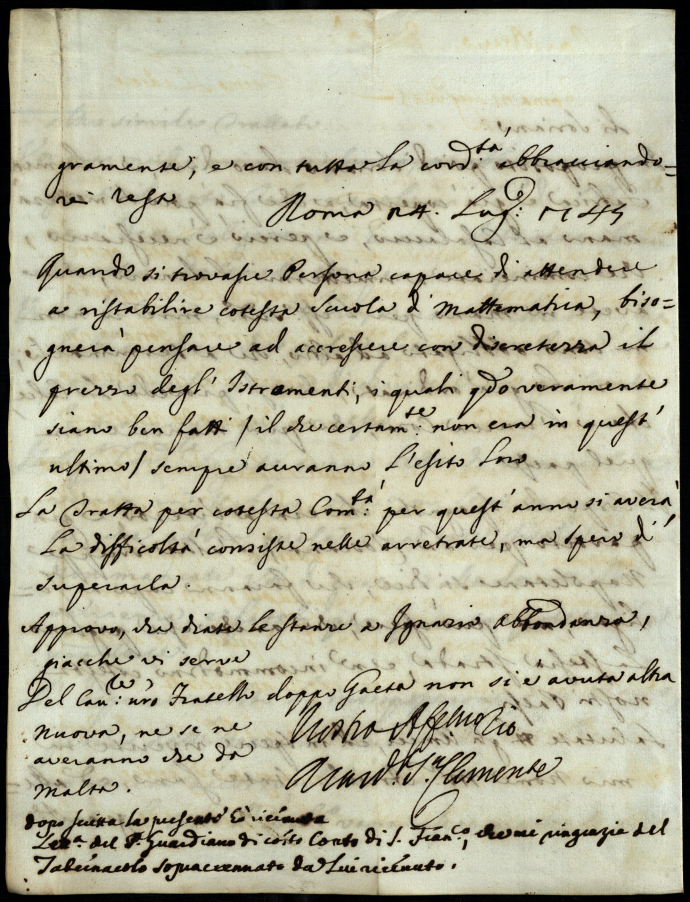 gramente, e con tutta la cord.tà abbracciando=
vi resta
Roma 24. Lug.o 1745
Quando si trovasse Persona capace di attendere
a ristabilire cotesta scuola di Mattematica, biso=
gnerà pensare ad accrescere con discretezza il
prezzo degl' Istromenti, i quali qdo veramente
siano ben fatti / il che certam.te non era in quest'
ultimo / sempre auranno l'esito loro
La Tratta per cotesta Com.tà per quest'anno si averà,
La difficoltà consiste nelle arretrate, ma spero di
superarla.
Approvo, che diate le stanze a Ignazio Abbondanza,
giacche vi serve
Del Cau.re vro Fratello doppo Gaeta non si è avuta altra
nuova, ne se ne
averanno che da
Malta.
Vostro Affmo Zio
Card. S. Clemente
dopo scritta la presente è ricevuta
Lra del P. Guardiano di costo Conto di S. Franco, che mi ringrazia del
Tabernacolo sopraccennato da Lui ricevuto.